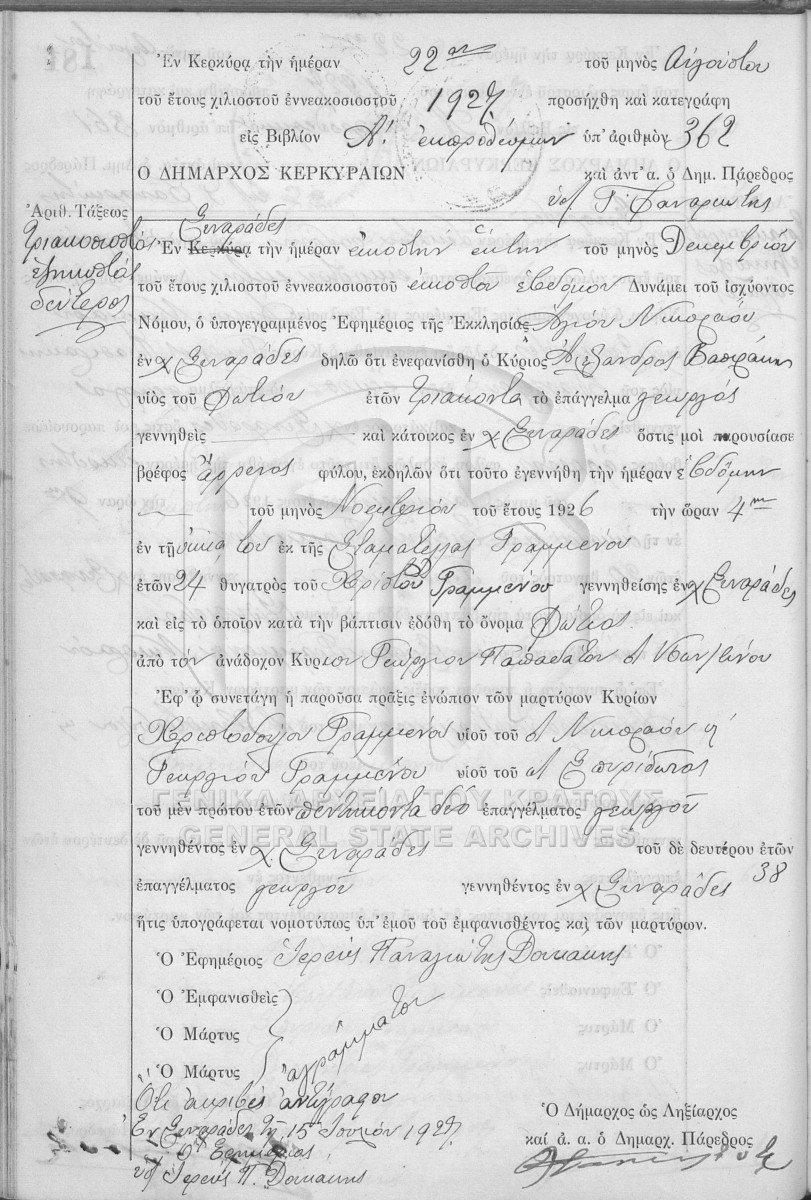 Ἐν Κερκύρᾳ τὴν ἡμέραν 22αν τοῦ μηνὸς Αὐγούστου
τοῦ ἔτους χιλιοστοῦ ἐννεακοσιοστοῦ 1927 προσήχθη καὶ κατεγράφη
εἰς Βιβλίον Α! ἐκπροθέσμων ὑπ' ἀριθμὸν 362
Ο ΔΗΜΑΡΧΟΣ ΚΕΡΚΥΡΑΙΩΝ καὶ ἀντ' α. ὁ Δημ. Πάρεδρος
Γ. Φαναριώτης
Ἀριθ. Τάξεως
Τριακοσιοστός
ἑξηκοστός
δεύτερος
Σιναράδες
Ἐν Κερκύρᾳ τὴν ἡμέραν εἰκοστὴν ἕκτην τοῦ μηνὸς Δεκεμβρίου
τοῦ ἔτους χιλιοστοῦ ἐννεακοσιοστοῦ εἰκοστοῦ ἑβδόμου Δυνάμει τοῦ ἰσχύοντος
Νόμου, ὁ ὑπογεγραμμένος Ἐφημέριος τῆς Ἐκκλησίας Ἁγίου Νικολάου
ἐν χ Σιναράδες δηλῶ ὅτι ἐνεφανίσθη ὁ Κύριος Ἀλέξανδρος
υἱὸς τοῦ Φωτίου ἐτῶν τριάκοντα τὸ ἐπάγγελμα γεωργός
γεννηθεὶς καὶ κάτοικος ἐν χ Σιναράδες ὅστις μοὶ παρουσίασε
βρέφος ἄρρενος φύλου, ἐκδηλῶν ὅτι τοῦτο ἐγεννήθη τὴν ἡμέραν ἑβδόμην
τοῦ μηνὸς Νοεμβρίου τοῦ ἔτους 1926 τὴν ὥραν 4ην
ἐν τῇ οἰκίᾳ του ἐκ τῆς Σταματέλλας Γραμμένου
ἐτῶν 24 θυγατρὸς τοῦ Χρίστου Γραμμένου γεννηθείσης ἐν χ Σιναράδες
καὶ εἰς τὸ ὁποῖον κατὰ τὴν βάπτισιν ἐδόθη τὸ ὄνομα Φώτιος
ἀπὸ τὸν ἀνάδοχον Κύριον Γεώργιον Παπαδάτον
Ἐφ' ᾧ συνετάγη ἡ παροῦσα πρᾶξις ἐνώπιον τῶν μαρτύρων Κυρίων
Χριστοδούλου Γραμμένου υἱοῦ τοῦ Νικολάου ἢ
Γεωργίου Γραμμένου υἱοῦ τοῦ Σπυρίδωνος
τοῦ μὲν πρώτου ἐτῶν πεντήκοντα δύο ἐπαγγέλματος γεωργοῦ
γεννηθέντος ἐν χ Σιναράδες τοῦ δὲ δευτέρου ἐτῶν 38
ἐπαγγέλματος γεωργοῦ γεννηθέντος ἐν χ Σιναράδες
ἥτις ὑπογράφεται νομοτύπως ὑπ' ἐμοῦ τοῦ ἐμφανισθέντος καὶ τῶν μαρτύρων.
Ὁ Ἐφημέριος Ἱερεὺς Παναγιώτης
Ὁ Ἐμφανισθεὶς
Ὁ Μάρτυς
Ὁ Μάρτυς
ἀγράμματοι
Ὅτι ἀκριβὲς ἀντίγραφον
Ἐν Σιναράδες τῇ 15 Ἰουλίου 1927
Ὁ Ἐφημέριος
Ἱερεὺς Π.
Ὁ Δήμαρχος ὡς Ληξίαρχος
καὶ ἀ. α. ὁ Δημαρχ. Πάρεδρος
ΓΕΝΙΚΑ ΑΡΧΕΙΑ ΤΟΥ ΚΡΑΤΟΥΣ
GENERAL STATE ARCHIVES